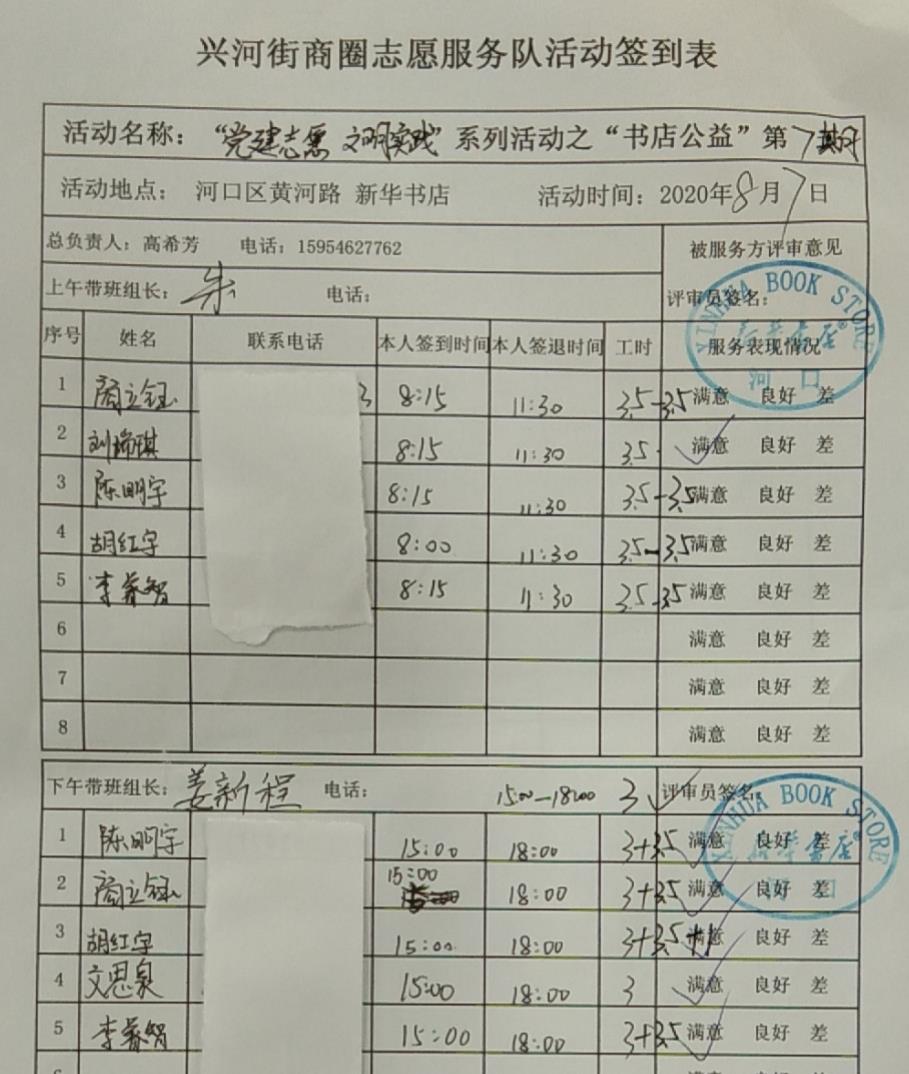 兴河街商圈志愿服务队活动签到表
活动名称：“党建志愿 文明实践”系列活动之“书店公益”第7期
活动地点： 河口区黄河路 新华书店 活动时间：2020年8月7日
总负责人：高希芳 电话：15954627762 被服务方评审意见
上午带班组长：朱 电话： 评审员签名：
XINHUA BOOK STORE
新华书店®
河 口
序号 姓名 联系电话 本人签到时间 本人签退时间 工时 服务表现情况
1 阎立钰 3 8:15 11:30 3.5-3.5 满意 良好 差
2 刘瑞琪 8:15 11:30 3.5 满意 良好 差
3 陈明宇 8:15 11:30 3.5-3.5 满意 良好 差
4 胡红宇 8:00 11:30 3.5-3.5 满意 良好 差
5 李睿智 8:15 11:30 3.5-3.5 满意 良好 差
6 满意 良好 差
7 满意 良好 差
8 满意 良好 差
下午带班组长：姜新程 电话： 15:00-18:00 3 评审员签名：
XINHUA BOOK STORE
新华书店®
河 口
1 陈明宇 15:00 18:00 3+3.5 满意 良好 差
2 阎立钰 15:00 18:00 3+3.5 满意 良好 差
3 胡红宇 15:00 18:00 3+3.5+1 满意 良好 差
4 文思泉 15:00 18:00 3 满意 良好 差
5 李睿智 15:00 18:00 3+3.5 满意 良好 差